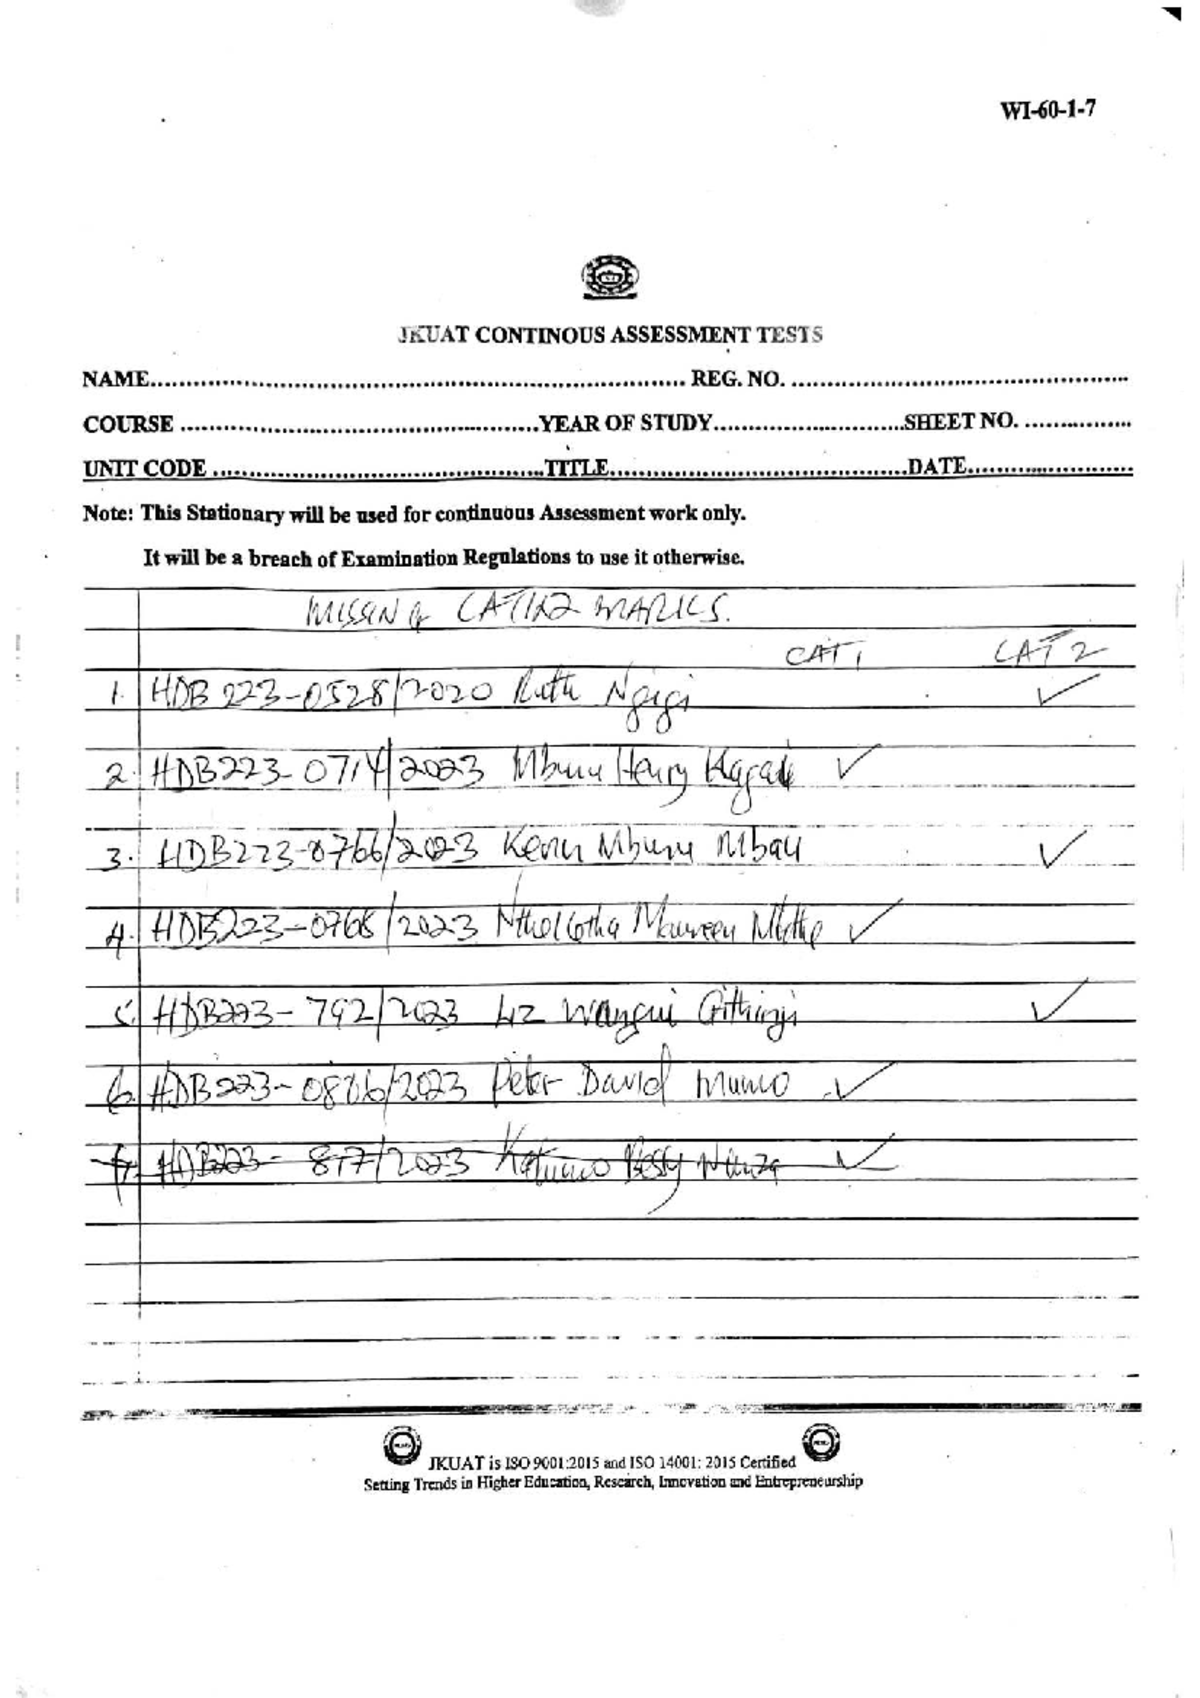 WI-60-1-7
JKUAT CONTINOUS ASSESSMENT TESTS
NAME........ REG. NO. ........
COURSE ........YEAR OF STUDY........SHEET NO. ........
UNIT CODE ........TITLE........DATE........
Note: This Stationary will be used for continuous Assessment work only.
It will be a breach of Examination Regulations to use it otherwise.
MISSING CAT1&2 MARKS.
CAT1 CAT2
1. HDB 223-0528/2020 Ruth Ngigi ✓
2. HDB223-0714/2023 Mburu Henry ✓
3. HDB223-0766/2023 Kevin Mburu Mbau ✓
4. HDB223-0768/2023 Maureen ✓
5. HDB223-792/2023 Liz Wangui Githinji ✓
6. HDB223-0886/2023 Peter David Mumo ✓
7. HDB223-877/2023 Katumo ✓
JKUAT is ISO 9001:2015 and ISO 14001: 2015 Certified
Setting Trends in Higher Education, Research, Innovation and Entrepreneurship